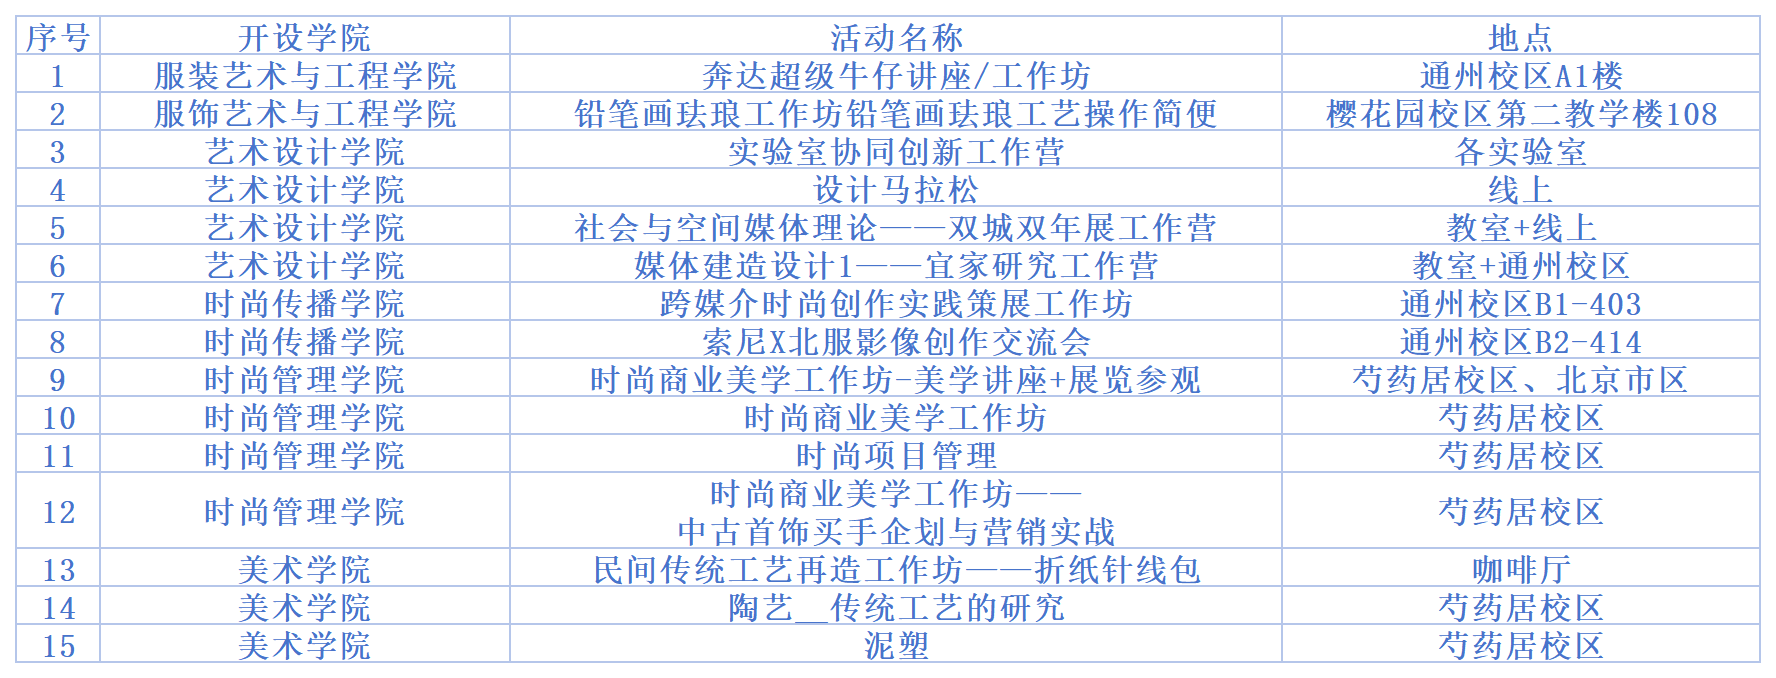 序号 开设学院 活动名称 地点
1 服装艺术与工程学院 奔达超级牛仔讲座/工作坊 通州校区A1楼
2 服饰艺术与工程学院 铅笔画珐琅工作坊铅笔画珐琅工艺操作简便 樱花园校区第二教学楼108
3 艺术设计学院 实验室协同创新工作营 各实验室
4 艺术设计学院 设计马拉松 线上
5 艺术设计学院 社会与空间媒体理论——双城双年展工作营 教室+线上
6 艺术设计学院 媒体建造设计1——宜家研究工作营 教室+通州校区
7 时尚传播学院 跨媒介时尚创作实践策展工作坊 通州校区B1-403
8 时尚传播学院 索尼X北服影像创作交流会 通州校区B2-414
9 时尚管理学院 时尚商业美学工作坊-美学讲座+展览参观 芍药居校区、北京市区
10 时尚管理学院 时尚商业美学工作坊 芍药居校区
11 时尚管理学院 时尚项目管理 芍药居校区
12 时尚管理学院 时尚商业美学工作坊—— 芍药居校区
中古首饰买手企划与营销实战
13 美术学院 民间传统工艺再造工作坊——折纸针线包 咖啡厅
14 美术学院 陶艺__传统工艺的研究 芍药居校区
15 美术学院 泥塑 芍药居校区